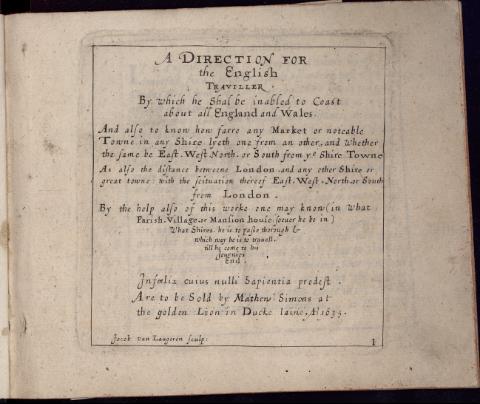 A DIRECTION FOR
the English
TRAVILLER
By which he Shal be inabled to Coast
about all England and Wales.
And also to know how farre any Market or noteable
Towne in any Shire lyeth one from an other, and whether
the same be East. West. North. or South from yᵉ Shire Towne
As also the distance betweene London and any other Shire or
great towne: with the scituation thereof East. West. North. or South
from London.
By the help also of this worke one may know (in what
Parish. Village. or Mansion house soever he be in)
What Shires he is to passe through &
which way he is to travell.
till he come to his
Journeys
End.
Infœlix cuius nulli Sapientia prodest.
Are to be Sold by Mathew Simons at
the golden Lion in Ducke laine. Aᵒ 1635.
Jacob van Langeren sculp:
1